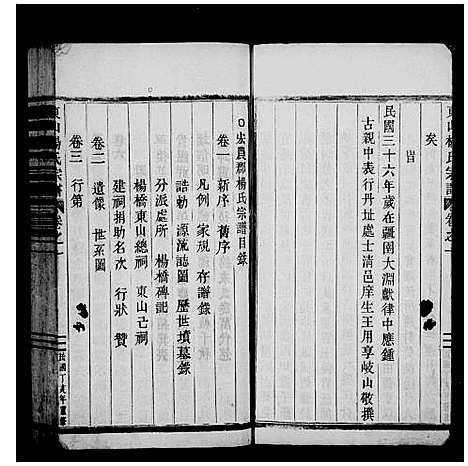 矣
旹
民國三十六年歲在疆圉大淵獻律中應鍾
古親中表行丹址處士清邑庠生王用享岐山敬撰
弘農郡楊氏宗譜目錄
卷一 新序 舊序
凡例 家規 存譜錄
誥勅 源流誌圖 歷世墳墓錄
分派處所 楊橋碑記
楊橋東山總祠 東山己祠
建祠捐助名次 行狀 贊
卷二 遺像 世系圖
卷三 行第
東山楊氏宗譜 卷之一
民國丁亥年重修